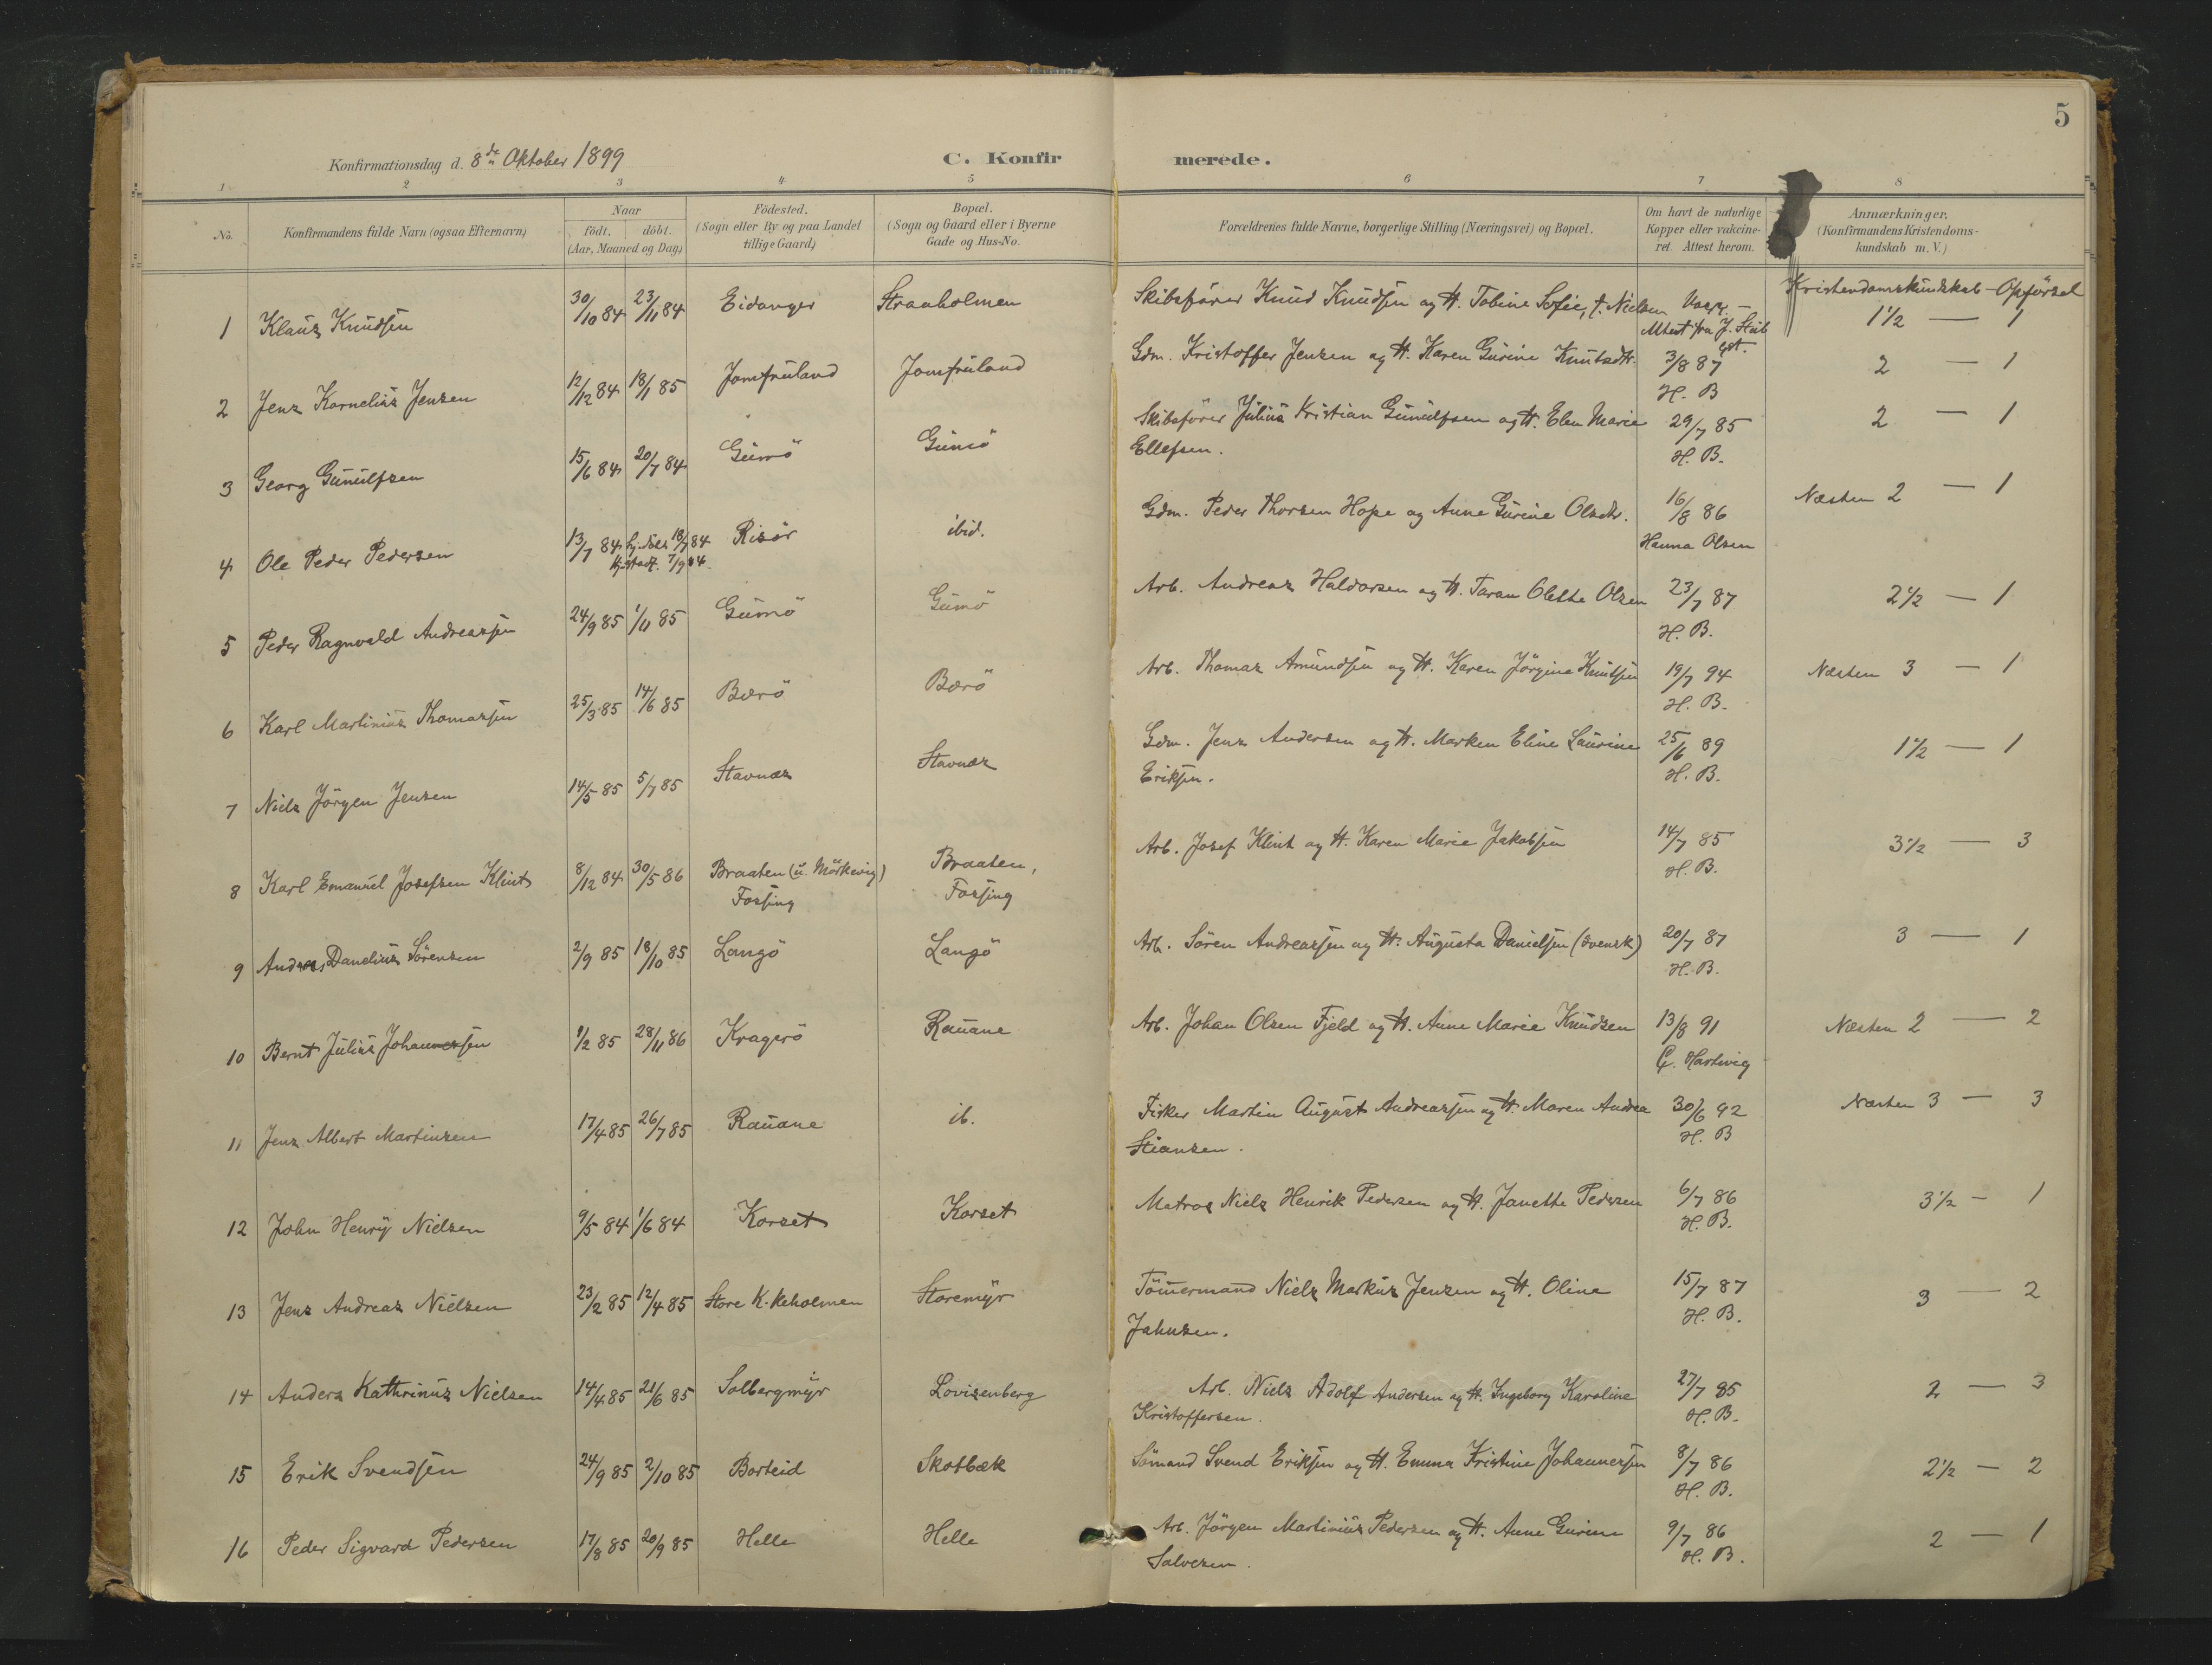 5
Konfirmationsdag d. 8de Oktober 1899
C. Konfirmerede.
1 2 3 4 5 6 7 8
No. Konfirmandens fulde Navn (ogsaa Efternavn) Naar födt. döbt. (Aar, Maaned og Dag) Födested. (Sogn eller By og paa Landet tillige Gaard) Bopæl. (Sogn og Gaard eller i Byerne Gade og Hus-No. Forældrenes fulde Navne, borgerlige Stilling (Næringsvei) og Bopæl. Om havt de naturlige Kopper eller vakcineret. Attest herom. Anmærkninger. (Konfirmandens Kristendomskundskab m. V.)
Kristendomskundskab - Opførsel
1 Klaus Knudsen 30/10 84 23/11 84 Eidanger Straaholmen Skibsfører Knud Knudsen og H. Tobine Sofie, f. Nielsen Attest fra J. 1 1/2 — 1
2 Jens Kornelius Jensen 12/12 84 18/1 85 Jomfruland Jomfruland Gdm. Kristoffer Jensen og H. Karen Gurine Knutsdtr. 3/8 87 H. B 2 — 1
3 Georg Gunulfsen 15/6 84 20/7 84 Gumö Gumö Skibsfører Julius Kristian Gunulfsen og H. Elen Marie 29/7 85 2 — 1
Ellefsen. H. B.
4 Ole Peder Pedersen 13/7 84 Hj. döbt 18/7 84 Risör ibid. Gdm. Peder Thorsen Hope og Anne Gurine Olsdtr. 16/8 86 Næsten 2 — 1
7/9 84 Hanna Olsen
5 Peder Ragnvald Andreassen 24/9 85 1/11 85 Gumö Gumö Arb. Andreas Haldorsen og H. Taran Olette Olsen 23/7 87 H. B. 2 1/2 — 1
6 Karl Martinius Thomassen 25/3 85 14/6 85 Bærö Bærö Arb. Thomas Amundsen og H. Karen Jörgine Knutsen 19/7 94 H. B. Næsten 3 — 1
7 Niels Jörgen Jensen 14/5 85 5/7 85 Stavnæs Stavnæs Gdm. Jens Andersen og H. Marken Eline Laurine 25/6 89 1 1/2 — 1
Eriksen. H. B.
8 Karl Emanuel Josefsen Klint 8/12 84 30/5 86 Braaten (u. Mörkevig) Braaten, Arb. Josef Klint og H. Karen Marie Jakobsen 14/7 85 3 1/2 — 3
Fossing Fossing H. B.
9 Andreas Danelius Sörensen 2/9 85 18/10 85 Langö Langö Arb. Sören Andreassen og H. Augusta Danielsen (svensk) 20/7 87 H. B. 3 — 1
10 Bernt Julius Johannessen 1/2 85 28/11 86 Kragerö Rauane Arb. Johan Olsen Fjeld og H. Anne Marie Knudsen 13/8 91 Næsten 2 — 2
C. Hartwig
11 Jens Albert Martinsen 17/4 85 26/7 85 Rauane ib. Fisker Martin August Andreassen og H. Maren Andrea 30/6 92 Næsten 3 — 3
Stiansen. H. B
12 John Henry Nielsen 9/5 84 1/6 84 Korset Korset Matros Niels Henrik Pedersen og H. Janette Pedersen 6/7 86 H. B. 3 1/2 — 1
13 Jens Andreas Nielsen 23/2 85 12/4 85 Store K.keholmen Storemyr Tömermand Niels Markus Jensen og H. Oline 15/7 87 3 — 2
Jahnsen. H. B.
14 Anders Kathrinus Nielsen 14/4 85 21/6 85 Solbergmyr Lovisenberg Arb. Niels Adolf Andersen og H. Ingeborg Karoline 27/7 85 2 — 3
Kristoffersen. H. B.
15 Erik Svendsen 24/9 85 2/10 85 Borteid Skotbæk Sömand Svend Eriksen og H. Emma Kristine Johannessen 8/7 86 H. B. 2 1/2 — 2
16 Peder Sigvard Pedersen 17/8 85 20/9 85 Helle Helle Arb. Jörgen Martinius Pedersen og H. Anne Gurine 9/7 86 2 — 1
Salvesen. H. B.